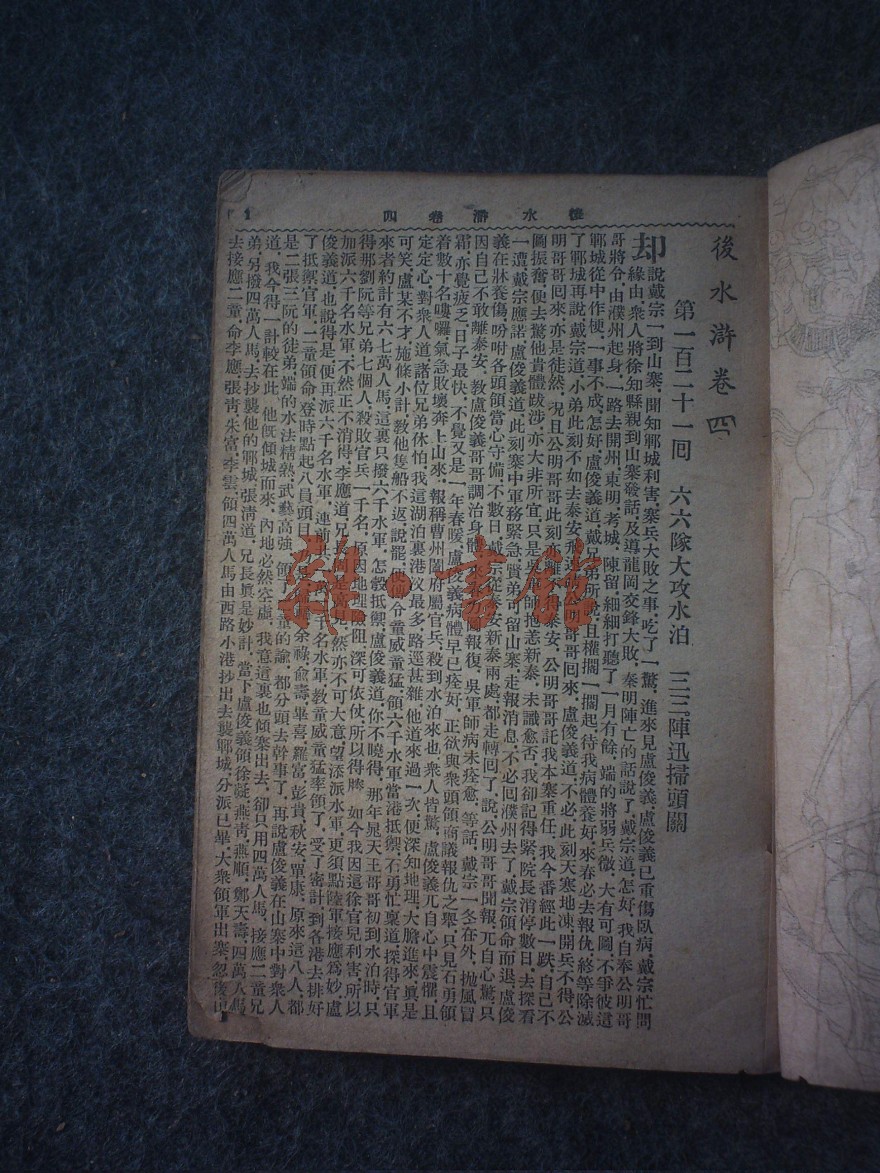 後水滸卷四
1
後水滸卷四
第一百二十一回　六六隊大攻水泊　三三陣迅掃頭關
却說戴宗一到山寨，聞知鄆城利害，寨兵大敗之事，吃了一驚，進來見盧俊義，盧俊義已重傷臥病，戴宗忙問
緣由，衆人將徐知縣親到山寨發話，及導龍岡交鋒大敗，秦明陣亡的話說了，戴宗道，怎好，我自奉公明哥
哥將令，由濮州起身，一路去開州，東明，考城，陳留，細細打聽了一月有餘，端的將弱兵微，大有可圖，不爭彼這
鄆城從中作梗，一事不成，怎好，盧俊義道，戴兄弟所說，且權擱一擱起，待我病體養好，來春必去報仇，終等除滅
了鄆城再說，戴宗道，小弟此刻不如去泰安，飛速請公明哥哥回來，盧俊義道，不必，此刻天寒地凍，開兵不得，公
明哥哥回來，亦是徒然，況且公明哥哥此刻亦離不得泰安，公明哥哥託我本寨重任，我今番經此一跌，自己不
圖振奮，便去驚他貴體跋涉，亦大非所宜，只是吳軍師抱恙新泰，未識愈否，我卻記得緊，院長消停數日，去探看
一遭，戴宗應諾，盧俊義道，此刻寨中軍務緊急，賢弟可留山寨，走報消息，不必回濮州去了，戴宗領命而退，盧俊
義在牀養傷，吩咐各頭領當心守備，不數日，戴宗從泰安新泰兩處，都走轉回了，說，公明哥哥聞報，兀自心驚，只
因自己不敢離泰安，教盧俊義哥哥調治身體，報復，吳軍師病未痊愈，等話，戴宗一冬在外，拋風冒
霜，亦覺疲乏，日子最快，不覺又是一年春暖，盧俊義病體早已痊好，正欲與衆頭領商議報仇之舉，只見石勇領
着數十名嘍囉，氣急敗壞，奔上山來，報稱曹州闔府屬官兵，殺到水泊來也，衆人皆驚，盧俊義兀自心中震懼，且
定定心，對衆人道，諸位兄弟休怕，我這湖泊裏港汊最多，路逕甚雜，他道來過一次，便深知地理，大膽進來，眞是
可笑，盧某不才，施條小計，教他隻船不返，說罷，便傳令童威童猛，領六千水軍當港抵禦，石勇忙稟道，探得官軍
來者約計有六七萬人馬，這裏只撥六千水軍，怎彀抵禦，盧俊義道，你不曉得，那年晁天王哥哥初到水泊時，只
得那劉阮等兄弟七個人，殺敗官兵一千名，原因地理險阻，深可依仗，所以得勝，如今我因這徐官兒利害，所以
加派六千名水軍，不然正不消得，李應道，兄長所見是高，然亦不可大意，望添派水軍，更須點陸軍接應爲妙，盧
俊義道，也說得是，便再派六千名水軍，連前共一萬二千名水軍，教童威童猛率領了，受了密計，到各港去排好
了抵禦官軍，二童領命，登時點起八員頭目，余祿，俞壽，畢喜，羅富，彭貴，秋安，單康，原來這八人，都
是二張三阮的徒弟，端的水法精熟，武藝高強，領了二童的諭，都分頭去幹事了，再說盧俊義在山寨中對衆人
道，我今得一計較在此，他旣傾城而來，內地必然空虛，我意這裏也傾寨出去，卻只用四萬人馬，接應二童兄
弟，另撥四萬人馬，去抄襲他的鄆城，張淸道，兄長眞是妙計，當下盧俊義領徐凝，燕靑，燕順，鄭天壽，四萬人馬
去接應二童，命李應，張靑，朱富，李雲，領四萬人馬，由西路小港抄出，去襲鄆城，分派已畢，大衆領軍出寨，忽後
雜·書館